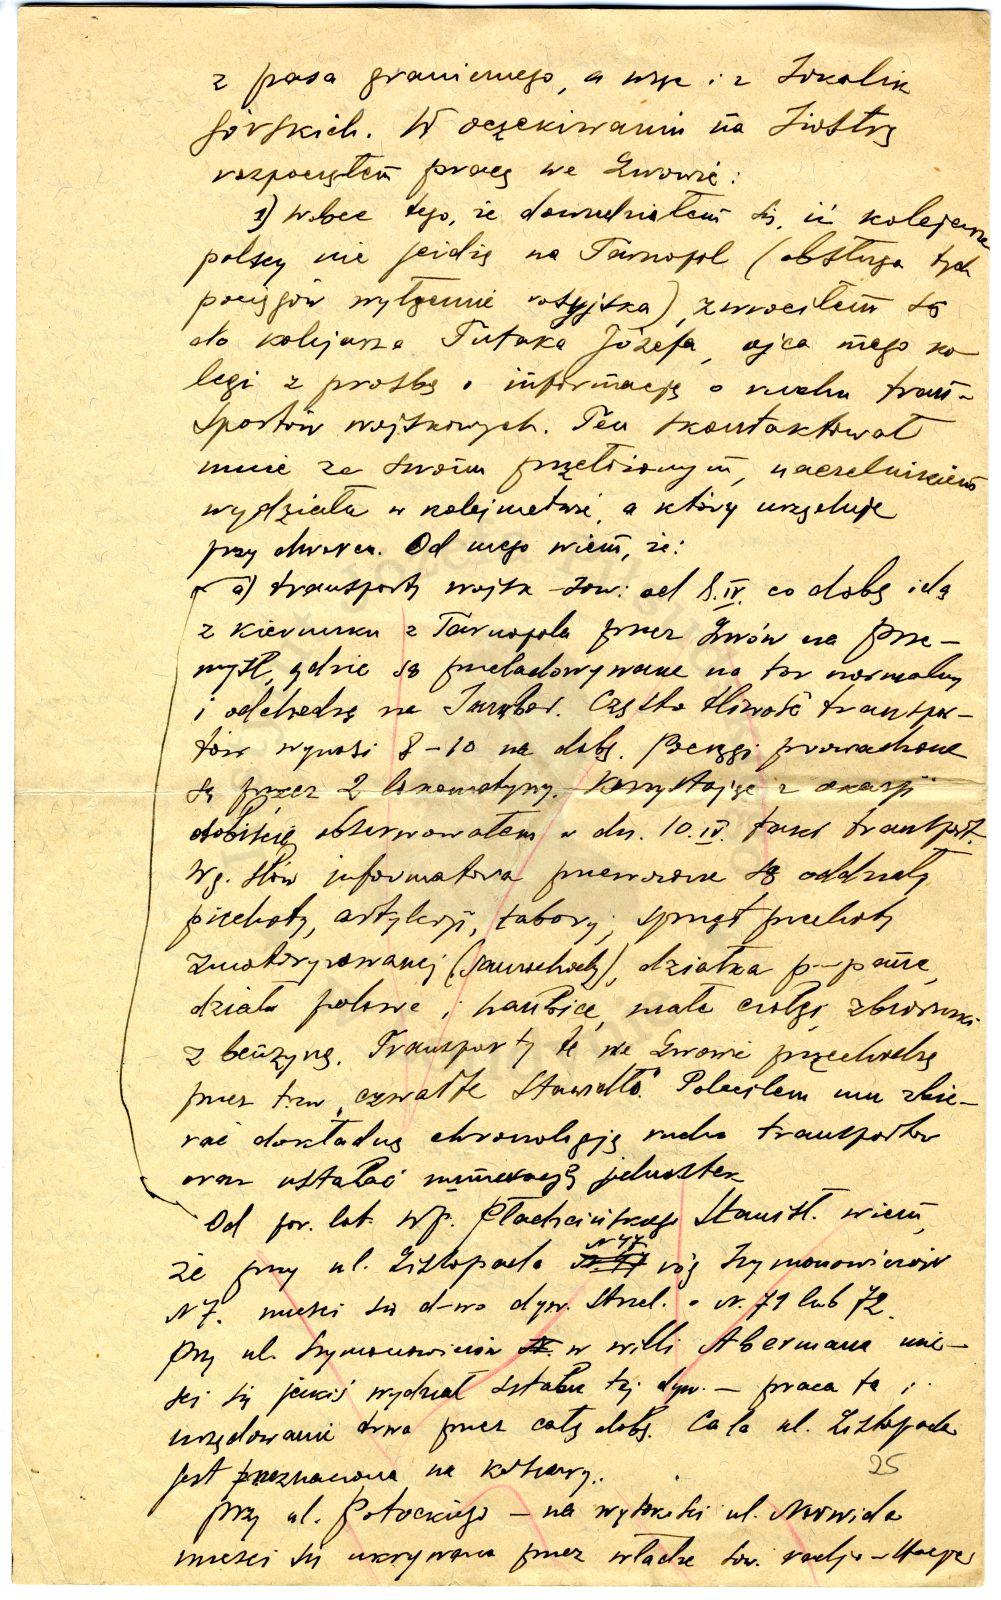 z pasa granicznego, a więc i z Sokolik
Górskich. W oczekiwaniu na Siostrę
rozpocząłem pracę we Lwowie:
1) wobec tego, że dowiedziałem się, iż kolejarze
polscy nie jeżdżą na Tarnopol (obsługa tych
pociągów wyłącznie rosyjska), zwróciłem się
do kolejarza Tutaka Józefa, ojca mego ko-
legi z prośbą o informację o ruchu tran-
sportów wojskowych. Ten skontaktował
mnie ze swoim przełożonym, naczelnikiem
wydziału w kolejnictwie, a który urzęduje
przy dworcu. Od niego wiem, że:
a) transporty wojsk sow: od 8.IV. co dobę idą
z kierunku z Tarnopola przez Lwów na Prze-
myśl, gdzie są przeładowywane na tor normalny
i odchodzą na Sambor. Częstotliwość transpor-
tów wynosi 8-10 na dobę. Pociągi prowadzone
są przez 2 lokomotywy. Korzystając z okazji
osobiście obserwowałem w dn. 10.IV. taki transport.
Wg. słów informatora przewożone są oddziały
piechoty, artylerji, tabory, sprzęt piechoty
zmotoryzowanej (samochody), działka p-panc,
działa polowe i haubice, małe czołgi, zbiorniki
z benzyną. Transporty te we Lwowie przechodzą
przez tzw. "czwarte Stawidło". Poleciłem mu zbie-
rać dokładną chronologię ruchu transportów
oraz ustalać numerację jednostek
Od por. lot. WP. Płachcińskiego Stanisł. wiem,
że przy ul. Listopada N 47 róg Szymonowiczów
N 7. mieści się d-wo dyw. Strzel. o N. 71 lub 72.
Przy ul. Szymonowiczów w willi Abermana mie-
ści się jakiś wydział sztabu tej dyw. - praca ta i
urzędowanie trwa przez całą dobę. Cała ul. Listopada
jest przeznaczona na koszary.
25
Przy ul. Potockiego - na wysokości ul. Norwida
mieści się ukrywana przez władze sow. radjo-stacja